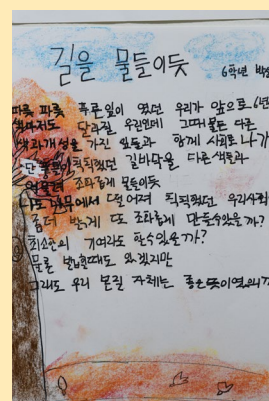 길을 물들이듯
6학년 박
파릇 파릇 푸른잎이 였던 우리가 앞으로 6년
색마저도 달라질 우린인데 그때쯤는 다른
색과개성을 가진 잎들과 함께 사회로 나가
단풍들이 칙칙했던 길바닥을 다른색들과
어울려 조화롭게 물들이듯
나도 나무에서 떨어져 칙칙했던 우리사회
좀더 밝게 또 조화롭게 만들수있을까?
최소한의 기여라도 할수있을까?
물론 밟힐때도 있겠지만
그래도 우리 본질 자체는 좋은뜻이였으니까